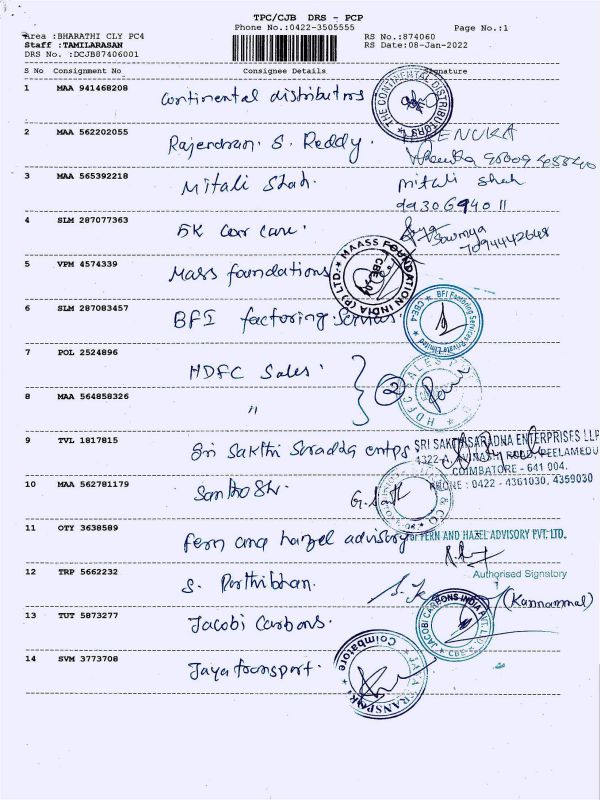 TPC/CJB DRS - PCP
Phone No.:0422-3505555
Page No.:1
Area :BHARATHI CLY PC4
Staff :TAMILARASAN
DRS No. :DCJB87406001
RS No.:874060
RS Date:08-Jan-2022
S No Consignment No Consignee Details Signature
1 MAA 941468208 Continental distributors
THE CONTINENTAL DISTRIBUTORS
2 MAA 562202055 Rajendran. S. Reddy. RENUKA
3 MAA 565392218 Mitali Shah. mitali shah
9930694011
4 SLM 287077363 5K Car care. Sowmya
7094442648
5 VPM 4574339 Mass foundations
MAASS FOUNDATION INDIA (P) LTD. CBE-04
6 SLM 287083457 BFI factoring services.
BFI Factoring Services Private Limited CBE-4
7 POL 2524896 HDFC Sales
HDFC SALES
8 MAA 564858326 " 2
9 TVL 1817815 Sri Sakthi Saradda entps.
SRI SAKTHI SARADNA ENTERPRISES LLP
4322-A, AVINASHI ROAD, PEELAMEDU
COIMBATORE - 641 004.
PHONE : 0422 - 4361030, 4359030
10 MAA 562781179 Santhosh. & CO
11 OTY 3638589 Fern and hazel advisory
For FERN AND HAZEL ADVISORY PVT. LTD.
Authorised Signatory
12 TRP 5662232 S. Parthiban. (Kannammal)
13 TUT 5873277 Jacobi Carbons.
JACOBI CARBONS INDIA PVT. LTD. CBE
14 SVM 3773708 Jaya transport.
JAYA TRANSPORT Coimbatore